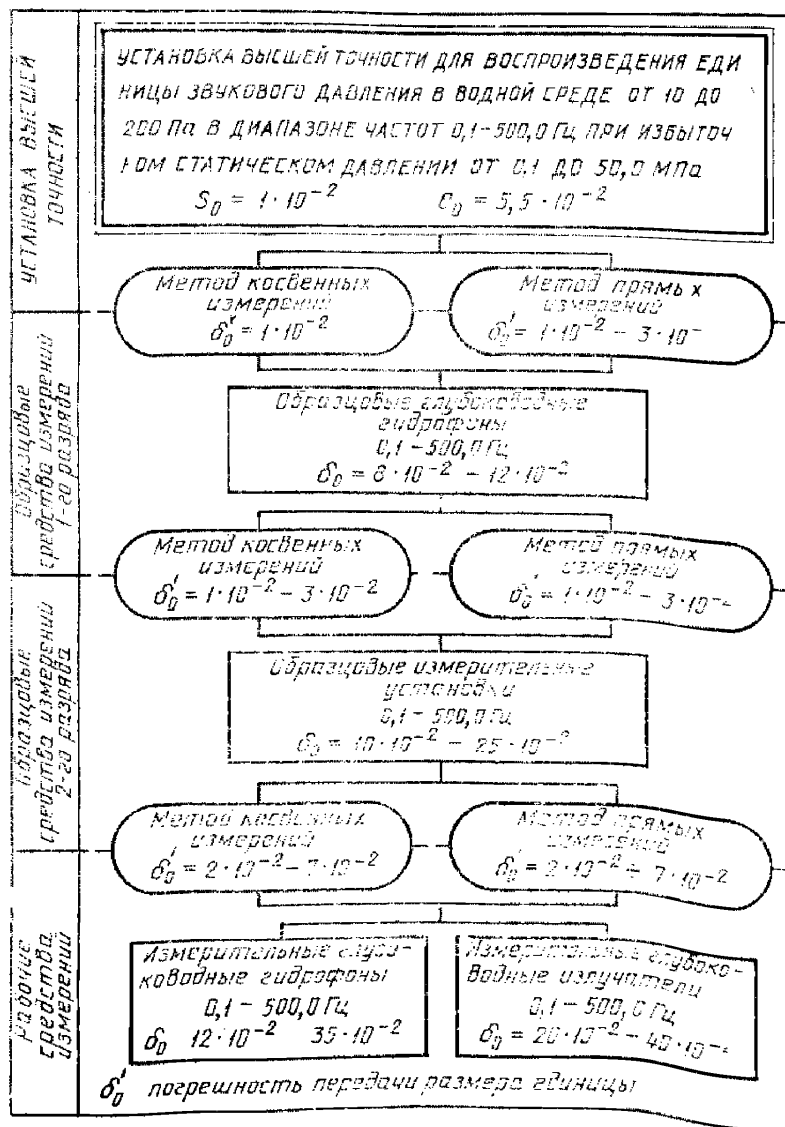 УСТАНОВКА ВЫСШЕЙ ТОЧНОСТИ
УСТАНОВКА ВЫСШЕЙ ТОЧНОСТИ ДЛЯ ВОСПРОИЗВЕДЕНИЯ ЕДИ
НИЦЫ ЗВУКОВОГО ДАВЛЕНИЯ В ВОДНОЙ СРЕДЕ ОТ 10 ДО
200 Па В ДИАПАЗОНЕ ЧАСТОТ 0,1-500,0 Гц ПРИ ИЗБЫТОЧ
НОМ СТАТИЧЕСКОМ ДАВЛЕНИИ ОТ 0,1 ДО 50,0 МПа
S₀ = 1·10⁻² Θ₀ = 5,5·10⁻²
Метод косвенных
измерений
δ₀' = 1·10⁻²
Метод прямых
измерений
δ₀' = 1·10⁻² – 3·10⁻
Образцовые
средства измерений
1-го разряда
Образцовые глубоководные
гидрофоны
0,1 – 500,0 Гц
δ₀ = 8·10⁻² – 12·10⁻²
Метод косвенных
измерений
δ₀' = 1·10⁻² – 3·10⁻²
Метод прямых
измерений
δ₀' = 1·10⁻² – 3·10⁻
Образцовые
средства измерений
2-го разряда
Образцовые измерительные
установки
0,1 – 500,0 Гц
δ₀ = 10·10⁻² – 25·10⁻²
Метод косвенных
измерений
δ₀' = 2·10⁻² – 7·10⁻²
Метод прямых
измерений
δ₀' = 2·10⁻² ÷ 7·10⁻²
Рабочие
средства
измерений
Измерительные глубо-
ководные гидрофоны
0,1 – 500,0 Гц
δ₀ 12·10⁻² 35·10⁻²
Измерительные глубоко-
водные излучатели
0,1 – 500,0 Гц
δ₀ = 20·10⁻² – 40·10⁻
δ₀' погрешность передачи размера единицы